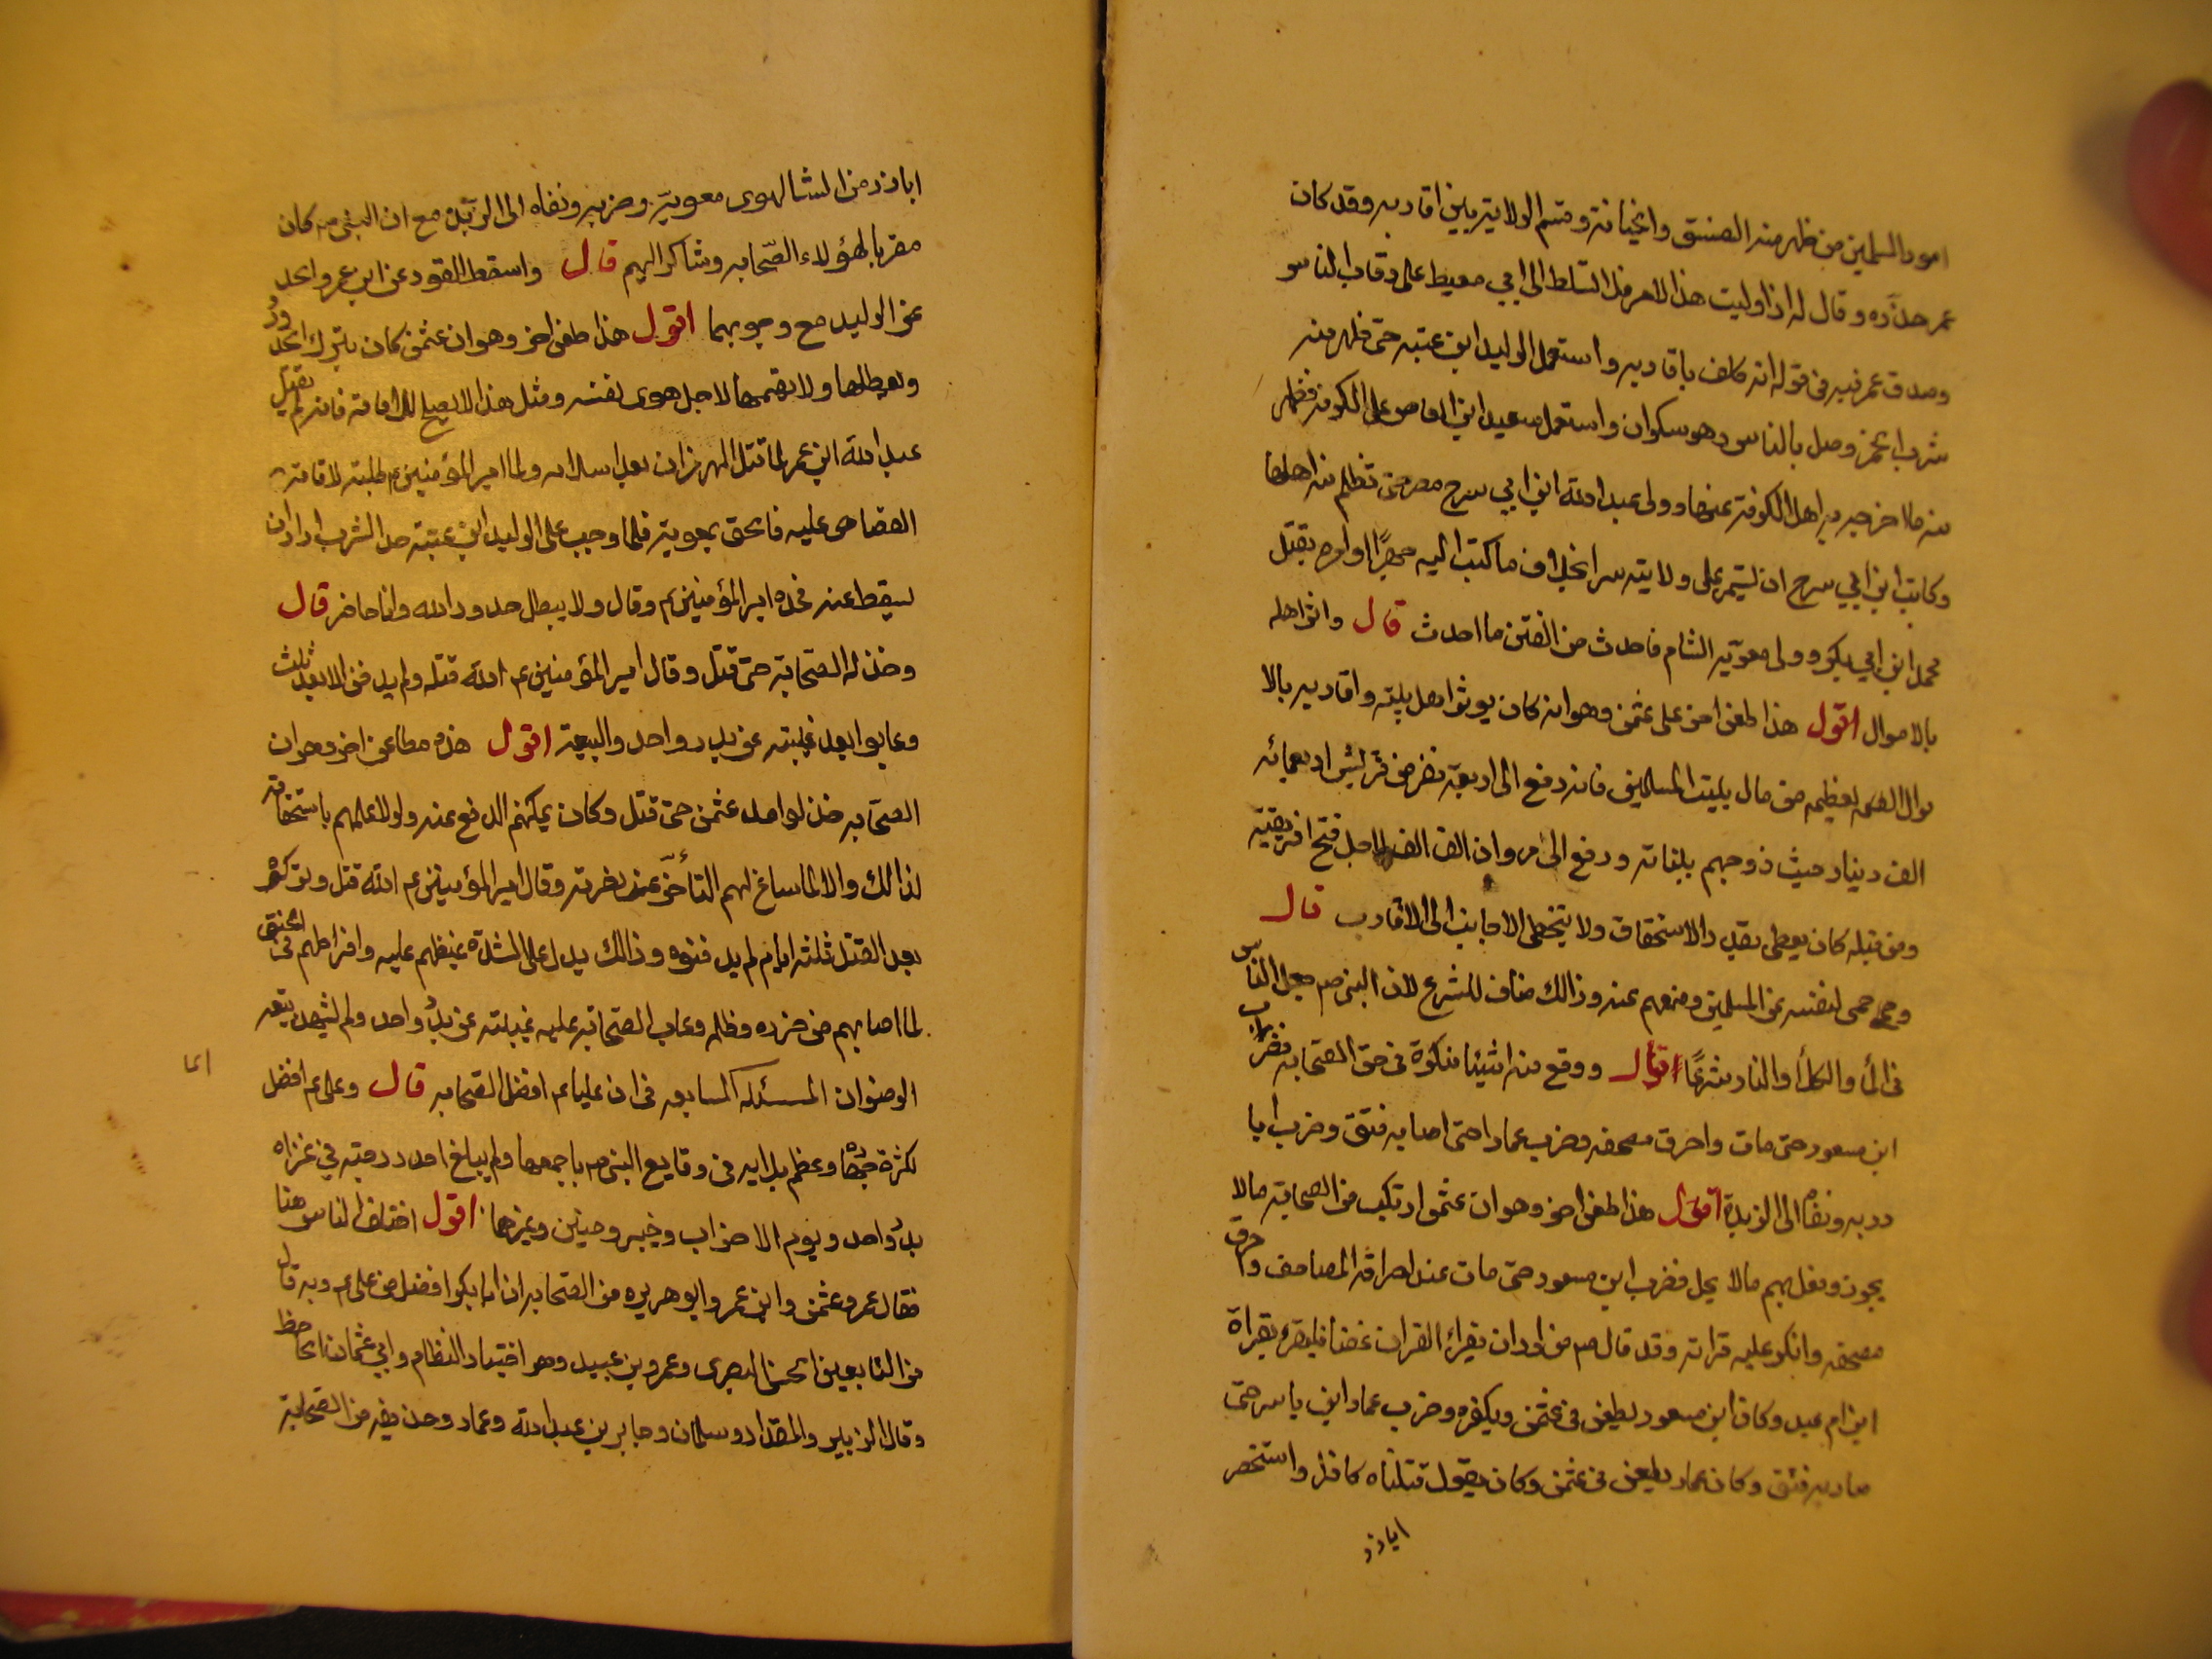 امور المسلمين من ظهر منه الفسق والخيانة وقسم الولاية بين اقاربه وقد كان
عمر حذره وقال له اذا وليت هذا الامر فلا تسلط ال ابي معيط على رقاب الناس
وصدق عمر فيه في قوله انه كلف باقاربه واستعمل الوليد ابن عتبه حتى ظهر منه
شرب الخمر وصلى بالناس وهو سكران واستعمل سعيد ابن العاص على الكوفه فظهر
منه ما اخرجه به اهل الكوفة عنها وولى عبد الله ابن ابي سرح مصر حتى تظلم منه اهلها
وكاتب ابن ابي سرح ان يستمر على ولايته سرا بخلاف ما كتب اليه جهرًا وامره بقتل
محمد ابن ابي بكر وولى معوية الشام فاحدث من الفتن ما احدث قال واثر اهله
بالاموال اقول هذا طعن اخر على عثمن وهو انه كان يوثر اهل بيته واقاربه بالا
موال العظيمه من مال بيت المسلمين فانه دفع الى اربعة نفر من قريش اربعمائه
الف دينار حيث زوجهم ببناته ودفع الى مروان الف الف لاجل فتح افريقيه
ومن قبله كان يعطى بقدر الاستحقاق ولا يتخطى الاجانب الى الاقارب قال
وحمى حمى لنفسه عن المسلمين ومنعهم عنه وذالك مناف للشرع لان النبي ص جعل الناس
في الماء والكلأ والنار شرعًا اقول ووقع منه اشيئا منكرة في حق الصحابه فضرب
ابن مسعود حتى مات واحرق مصحفه وضرب عمارا حتى اصابه فتق وضرب ابا
ذر به ونفاه الى الربذة اقول هذا طعن اخر وهو ان عثمن ارتكب من الصحابة مالا
يجوز وفعل بهم مالا يحل فضرب ابن مسعود حتى مات عند احراقه المصاحف واحرق
مصحفه وانكر عليه قرائه وقد قال ص من اراد ان يقراء القران غضا فليقرء بقراة
ابن ام عبد وكان ابن مسعود يطعن في عثمن ويكفره وضرب عمار ابن ياسر حتى
صار به فتق وكان عمار يطعن في عثمن وكان يقول قتلناه كافرا واستحضر
اباذر
اباذر من الشام لهوى معوية وضربه ونفاه الى الربذة مع ان النبي ص كان
مقربا لهؤلاء الصحابه وشاكرا لهم قال واسقط القود عن ابن عمر والحد
عن الوليد مع وجوبهما اقول هذا طعن اخر وهو ان عثمن كان يترك الحدود
ويعطلها ولا يقيمها لاجل هوى نفسه ومثل هذا لا يصلح للامامة فانه لم يقتل
عبد الله ابن عمر لما قتل الهرمزان بعد اسلامه ولما امير المؤمنين ع طلبته لاقامة
القصاص عليه فالحق بمعوية فلما وجب على الوليد ابن عتبة حد الشرب اراد ان
يسقط عنه فحده امير المؤمنين ع وقال ولا يبطل حدود الله وانا حاضر قال
وخذله الصحابة حتى قتل وقال امير المؤمنين ع الله قتله ولم يدفن الا بعد ثلث
وعابوا بعد غيبته عن بدر واحد والبيعة اقول هذه مطاعن اخر وهو ان
الصحابه خذلوا عثمن حتى قتل وكان يمكنهم الدفع عنه ولولا علمهم باستحقاقه
لذالك والا لما ساغ لهم التأخر عن نصرته وقال امير المؤمنين ع الله قتله وتركوه
بعد القتل ثلثه ايام لم يدفنوه وذالك يدل على شدة غيظهم عليه وافراطهم في الحنق
لما اصابهم من ضرره وظلمه وعاب الصحابة عليه غيبته عن بدر واحد ولم يشهد بيعة
الرضوان المسئله السابعه في ان عليا ع افضل الصحابه قال وعلى ع افضل
لكثرة جهاده وعظم بلائه في وقايع النبي ص باجمعها ولم يبلغ احد درجته في غزاه
بدر واحد ويوم الاحزاب وخيبر وحنين وغيرها اقول اختلف الناس هنا
فقال عمر وعثمن وابن عمر وابو هريره من الصحابه ان ابا بكر افضل من على ع وبه قال
من التابعين الحسن البصرى وعمرو بن عبيد وهو اختيار النظام وابي عثمان الجاحظ
وقال الزبير والمقداد وسلمان وجابر بن عبد الله وعمار وحذيفه من الصحابة